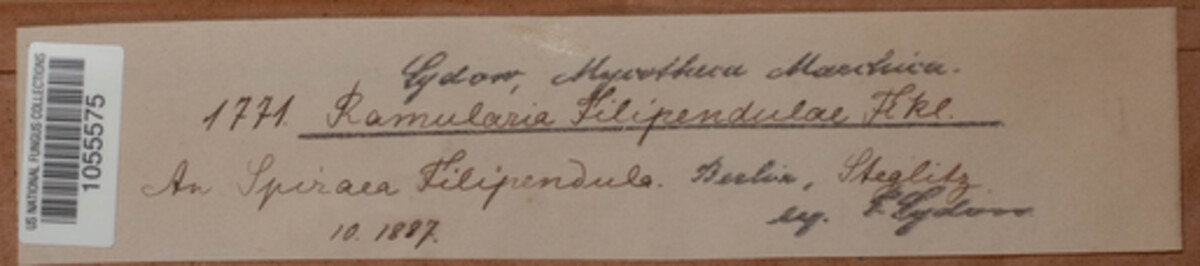 US NATIONAL FUNGUS COLLECTIONS
1055575
Sydow, Mycotheca Marchica.
1771. Ramularia Filipendulae Fkl.
An Spiraea Filipendula. Berlin, Steglitz
10. 1887. leg. P. Sydow